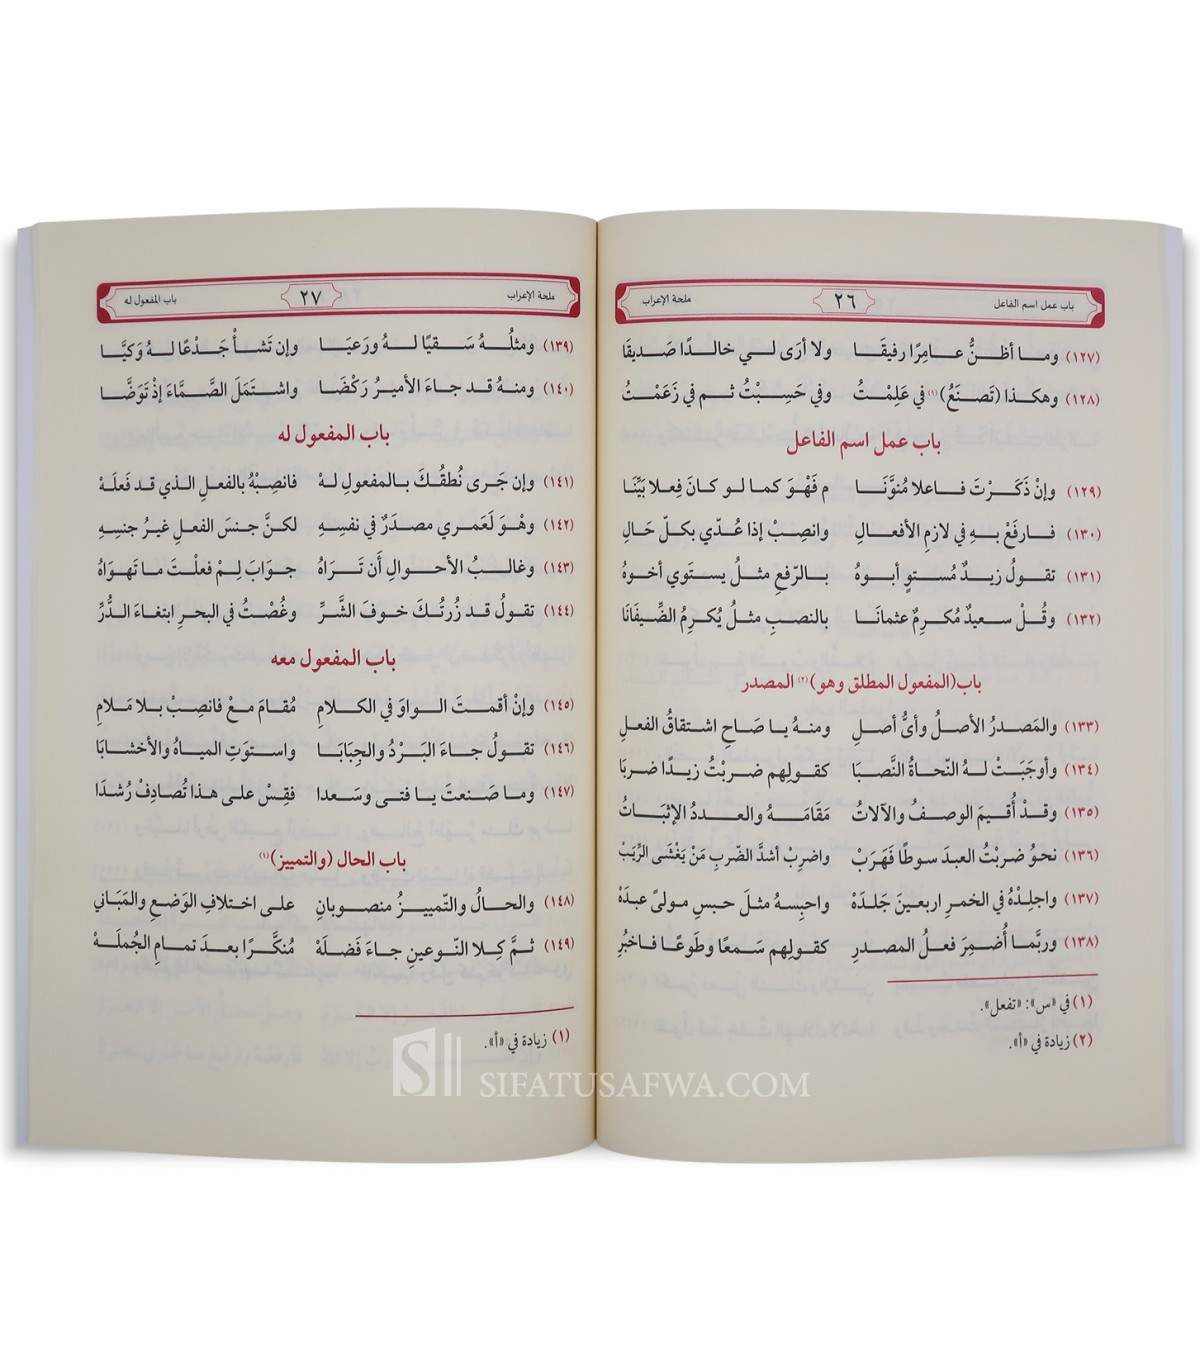 باب عمل اسم الفاعل ٢٦ ملحة الإعراب
(١٢٧) ومـا أظـنُّ عـامِرًا رفيقَـا ولا أرَى لـي خالـدًا صَـديقَا
(١٢٨) وهكـذا (تَصنَـعُ)(١) في عَلِمْـتُ وفي حَسِبْـتُ ثـم في زَعَمْـتُ
باب عمل اسم الفاعل
(١٢٩) وإنْ ذَكَـرْتَ فـاعلا مُنوَّنَـا م فَهْوَ كما لـو كـانَ فِعلا بيِّنَـا
(١٣٠) فـارفَعْ بـهِ في لازمِ الأفعـالِ وانصِبْ إذا عُـدّي بكـلّ حَـالِ
(١٣١) تقـولُ زيـدٌ مُستوٍ أبـوهُ بـالرّفعِ مثـلُ يسـتَوي أخـوهُ
(١٣٢) وقُـلْ سـعيدٌ مُكرِمٌ عثمانَـا بالنصبِ مثلُ يُكرِمُ الضِّيفَانَا
باب(المفعول المطلق وهو)(٢) المصدر
(١٣٣) والمَصدرُ الأصلُ وأيُّ أصلِ ومنهُ يـا صَـاحِ اشـتقاقُ الفعلِ
(١٣٤) وأوجَبَـتْ لـهُ النّحاةُ النَّصبَا كقولِهم ضـربْتُ زيـدًا ضربَا
(١٣٥) وقـدْ أُقيـمَ الوصـفُ والآلاتُ مَقَامَـهُ والعـددُ الإثبَـاتُ
(١٣٦) نحوُ ضربْتُ العبدَ سوطًا فَهَرَبْ واضرِبْ أشدَّ الضّربِ مَنْ يَغْشَى الرِّيَبْ
(١٣٧) واجلِدْهُ في الخمرِ اربعينَ جَلـدَهْ واحبِسهُ مثلَ حبسِ مـولىً عبدَهْ
(١٣٨) وربَّمـا أُضمِرَ فعـلُ المصـدرِ كقولِهم سَـمعًا وطَوعًـا فـاخبُرِ
(١) في «س»: «تفعل».
(٢) زيادة في «أ».
ملحة الإعراب ٢٧ باب المفعول له
(١٣٩) ومثلُـهُ سَـقيًا لـهُ ورَعيَـا وإن تَشـأْ جَـدْعًا لـهُ وَكيَّـا
(١٤٠) ومنهُ قـد جـاءَ الأميرُ رَكْضَا واشـتمَلَ الصَّـمَّاءَ إذْ تَوَضَّـا
باب المفعول له
(١٤١) وإن جَـرى نُطقُـكَ بـالمفعولِ لـهْ فانصِبْهُ بالفعلِ الـذي قـد فَعلَـهْ
(١٤٢) وهْوَ لَعَمـري مصـدَرٌ في نفسِـهِ لكـنَّ جـنسَ الفعلِ غيـرُ جنسِهِ
(١٤٣) وغالـبُ الأحـوالِ أن تَـرَاهُ جـوَابَ لِـمْ فعلْـتَ مـا تهـوَاهُ
(١٤٤) تقـولُ قـد زُرتُـكَ خـوفَ الشَّـرِّ وغُصْتُ في البحرِ ابتغاءَ الدُّرِّ
باب المفعول معه
(١٤٥) وإنْ أقمـتَ الـواوَ في الكـلامِ مُقـامَ مـعْ فانصِبْ بـلا مَـلامِ
(١٤٦) تقـولُ جـاءَ البَـرْدُ والجِبَابَـا واسـتوَتِ الميـاهُ والأخشـابَا
(١٤٧) ومـا صَـنعتَ يـا فتـى وسَـعدا فقِسْ علـى هـذا تُصادِفْ رُشدَا
باب الحال (والتمييز)(١)
(١٤٨) والحـالُ والتّمييـزُ منصـوبانِ علـى اخـتلافِ الوَضعِ والمَبَـاني
(١٤٩) ثـمَّ كِـلا النّـوعينِ جـاءَ فَضـلَهْ مُنكَّـرًا بعـدَ تمـامِ الجُملَـهْ
(١) زيادة في «أ».
SIFATUSAFWA.COM